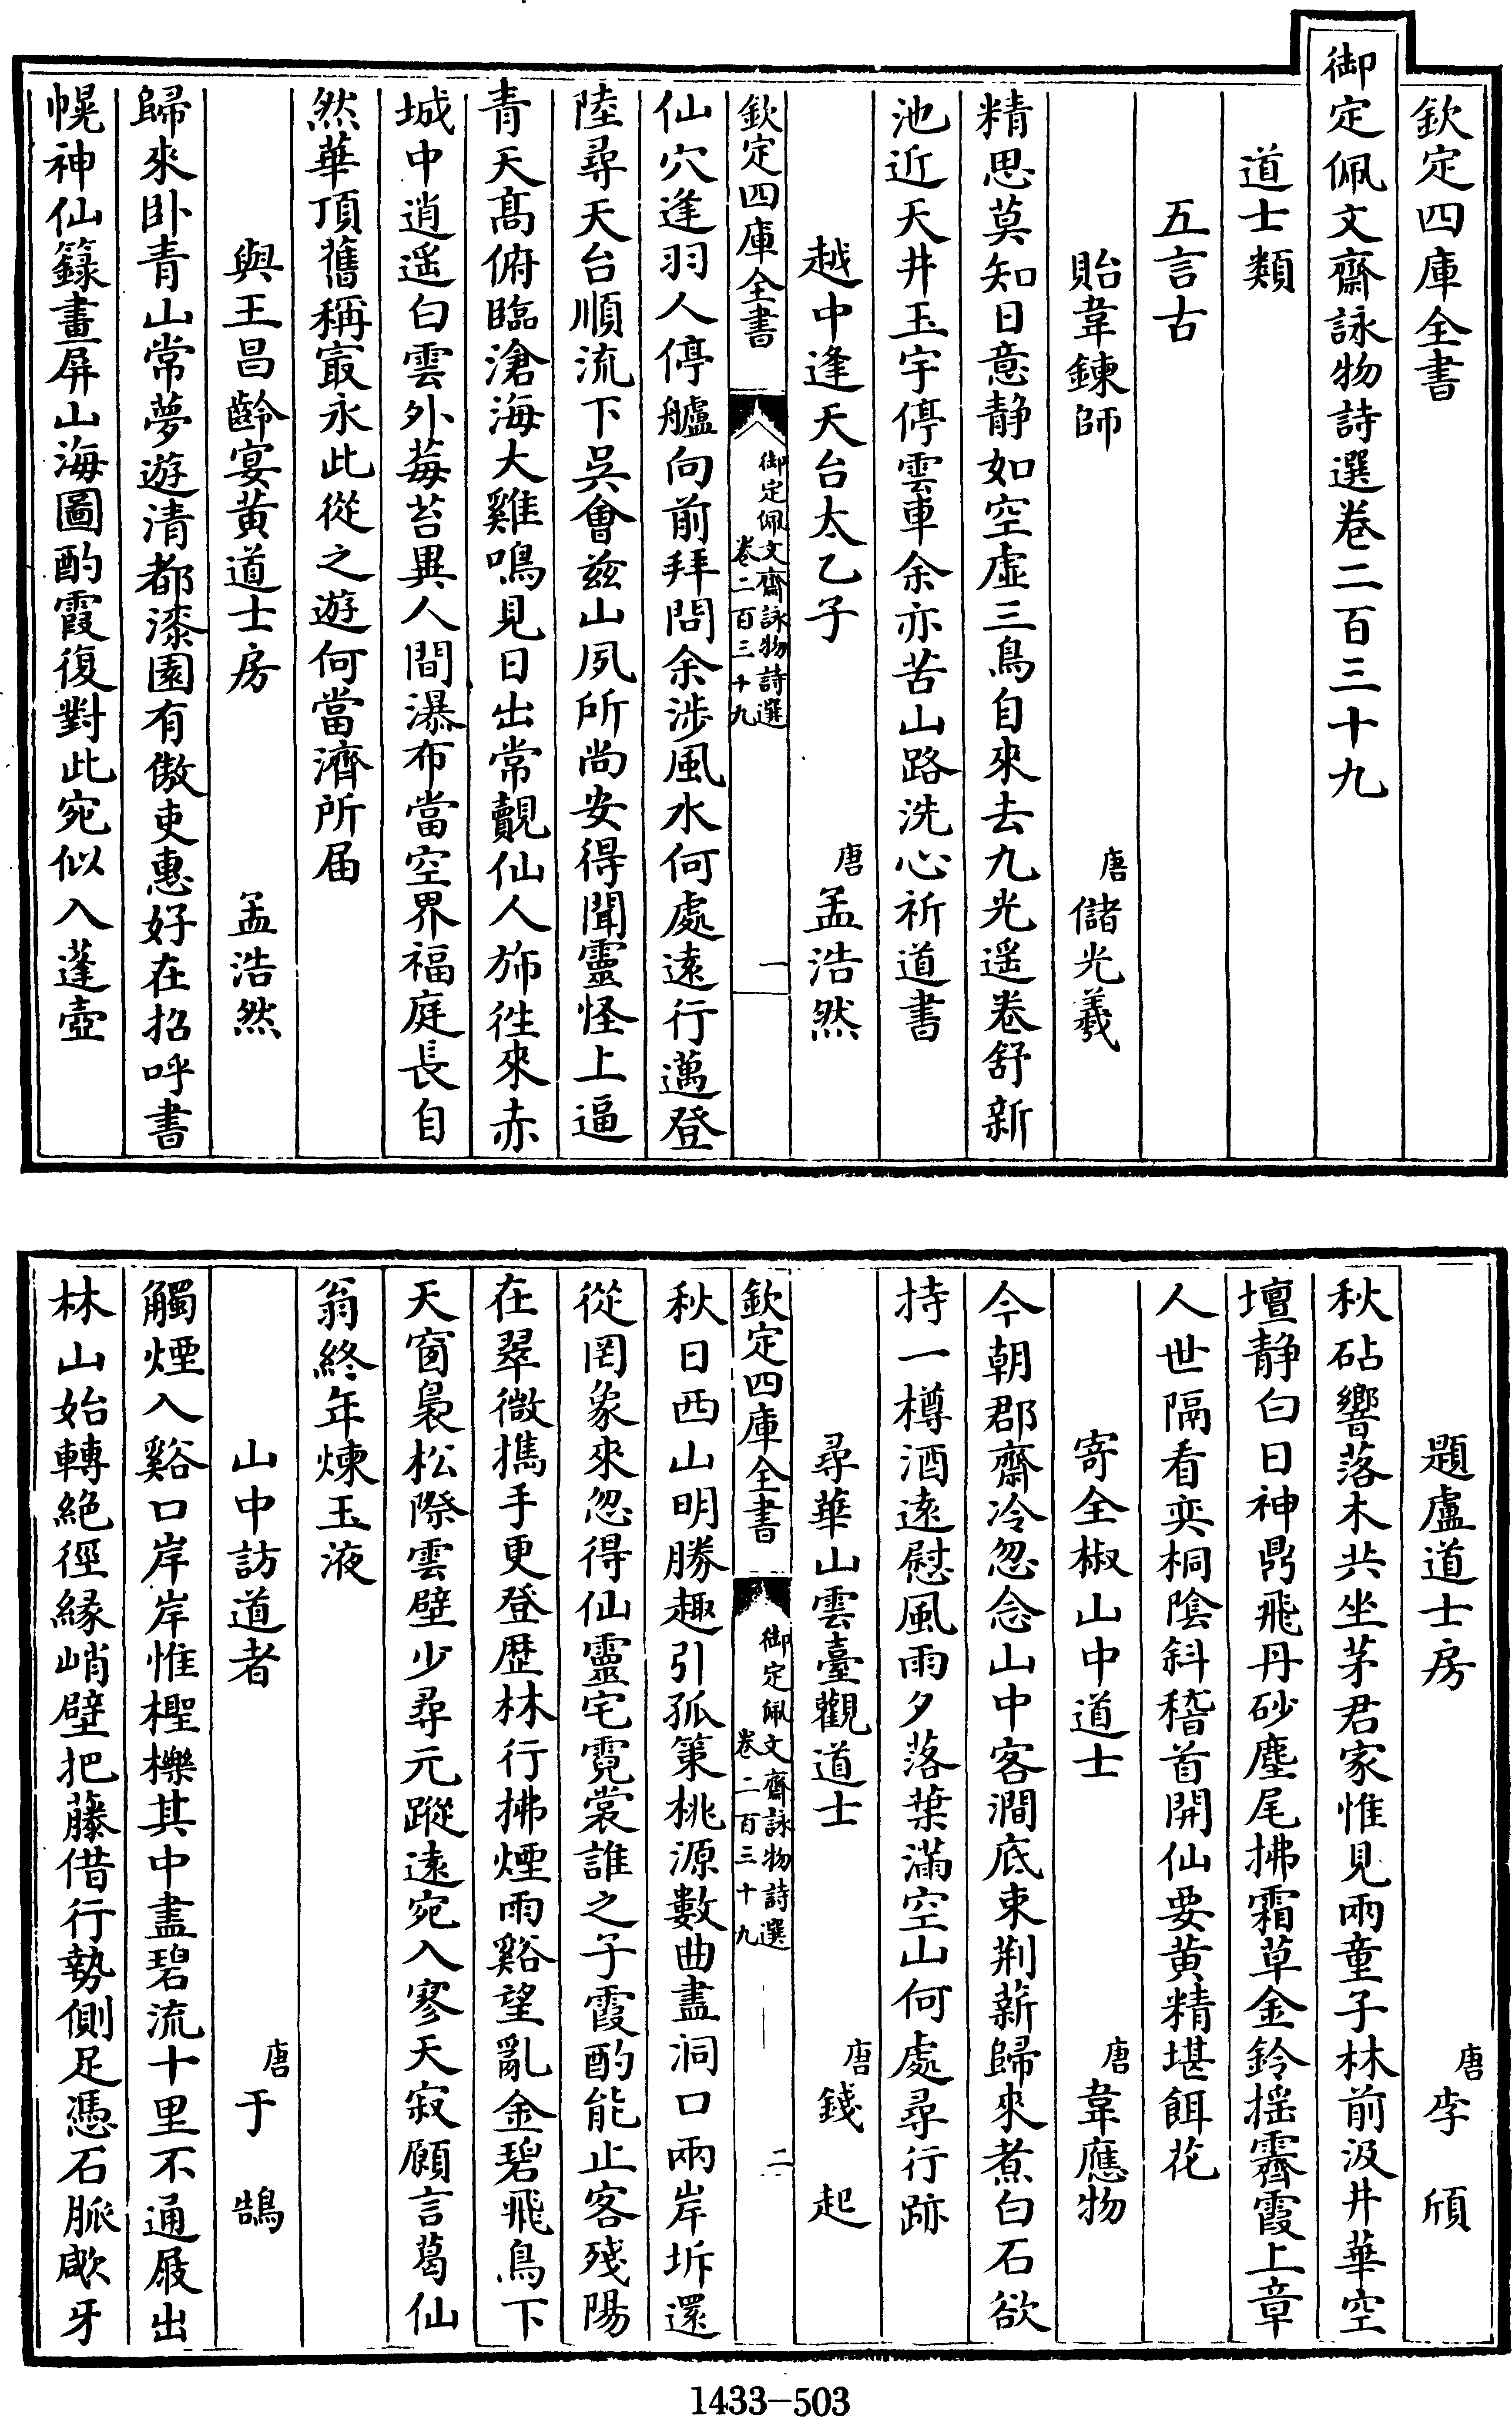 欽定四庫全書
御定佩文齋詠物詩選卷二百三十九
道士類
五言古
貽韋鍊師　唐儲光羲
精思莫知日意静如空虛三鳥自來去九光遥卷舒新
池近天井玉宇停雲車余亦苦山路洗心祈道書
越中逢天台太乙子　唐孟浩然
欽定四庫全書　御定佩文齋詠物詩選　卷二百三十九　一
仙穴逢羽人停艫向前拜問余涉風水何處遠行邁登
陸尋天台順流下吳會兹山夙所尚安得聞靈怪上逼
青天髙俯臨滄海大雞鳴見日出常覿仙人斾徃來赤
城中逍遥白雲外莓苔異人間瀑布當空界福庭長自
然華頂舊稱㝡永此從之遊何當濟所届
與王昌齡宴黄道士房　孟浩然
歸來卧青山常夢遊清都漆園有傲吏惠好在招呼書
幌神仙籙畫屏山海圖酌霞復對此宛似入蓬壺
題盧道士房　唐李頎
秋砧響落木共坐茅君家惟見兩童子林前汲井華空
壇静白日神鼎飛丹砂麈尾拂霜草金鈴摇霽霞上章
人世隔看奕桐陰斜稽首開仙要黄精堪餌花
寄全椒山中道士　唐韋應物
今朝郡齋冷忽念山中客澗底束荆薪歸來煮白石欲
持一樽酒遠慰風雨夕落葉滿空山何處尋行跡
尋華山雲臺觀道士　唐錢起
欽定四庫全書　御定佩文齋詠物詩選　卷二百三十九　二
秋日西山明勝趣引孤策桃源數曲盡洞口兩岸坼還
從罔象來忽得仙靈宅霓裳誰之子霞酌能止客殘陽
在翠微擕手更登歴林行拂煙雨谿望亂金碧飛鳥下
天窗裊松際雲壁少尋元蹤遠宛入寥天寂願言葛仙
翁終年煉玉液
山中訪道者　唐于鵠
觸煙入谿口岸岸惟檉櫟其中盡碧流十里不通屐出
林山始轉絶徑緣峭壁把藤借行勢側足憑石脈齖牙
1433-503